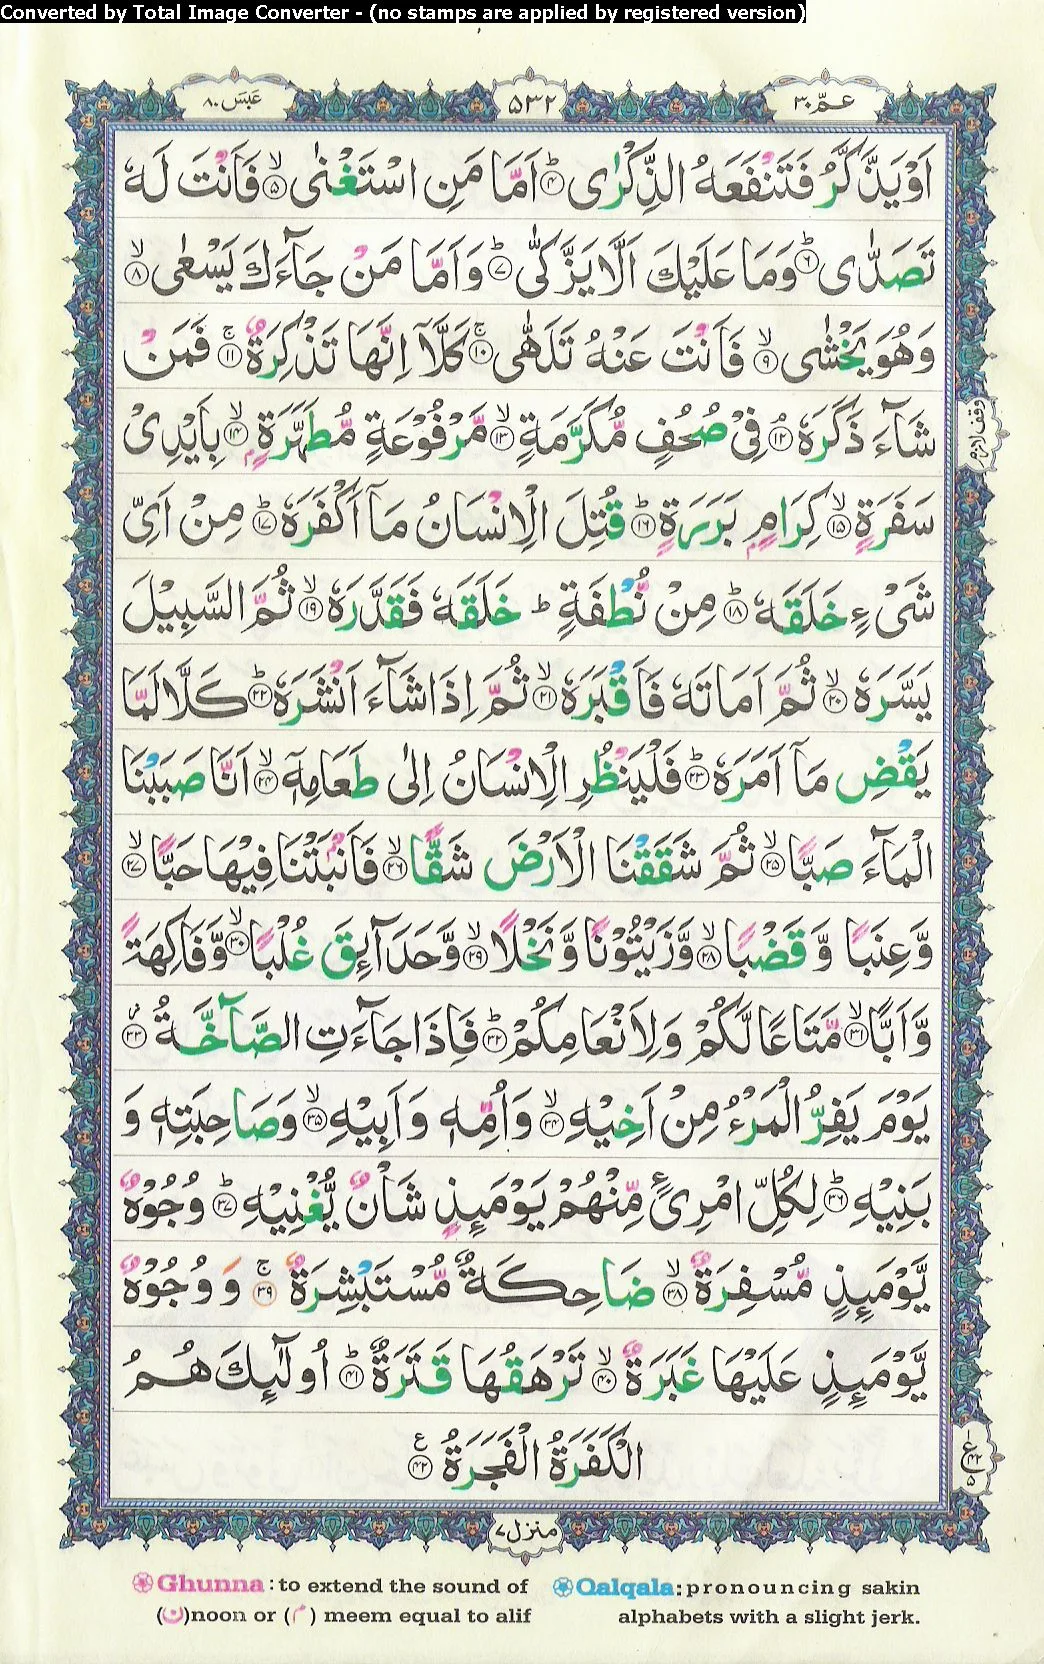 Converted by Total Image Converter - (no stamps are applied by registered version)
عَمّ ٣٠
٥٣٢
عَبَسَ ٨٠
اَوْ يَذَّكَّرُ فَتَنْفَعَهُ الذِّكْرٰى ؕ‏﴿۴﴾ اَمَّا مَنِ اسْتَغْنٰى ۙ‏﴿۵﴾ فَاَنْتَ لَهٗ
تَصَدّٰى ؕ‏﴿۶﴾ وَمَا عَلَيْكَ اَلَّا يَزَّكّٰى ؕ‏﴿۷﴾ وَاَمَّا مَنْ جَآءَكَ يَسْعٰى ۙ‏﴿۸﴾
وَهُوَ يَخْشٰى ۙ‏﴿۹﴾ فَاَنْتَ عَنْهُ تَلَهّٰى ۚ‏﴿۱۰﴾ كَلَّاۤ اِنَّهَا تَذْكِرَةٌ ۚ‏﴿۱۱﴾ فَمَنْ
شَآءَ ذَكَرَهٗ ۘ‏﴿۱۲﴾ فِىْ صُحُفٍ مُّكَرَّمَةٍ ۙ‏﴿۱۳﴾ مَّرْفُوْعَةٍ مُّطَهَّرَةٍ ۭ ۙ‏﴿۱۴﴾ بِاَيْدِىْ
وقف لازم
سَفَرَةٍ ۙ‏﴿۱۵﴾ كِرَامٍۭ بَرَرَةٍ ؕ‏﴿۱۶﴾ قُتِلَ الْاِنْسَانُ مَاۤ اَكْفَرَهٗ ؕ‏﴿۱۷﴾ مِنْ اَىِّ
شَىْءٍ خَلَقَهٗ ؕ‏﴿۱۸﴾ مِنْ نُّطْفَةٍ ؕ خَلَقَهٗ فَقَدَّرَهٗ ۙ‏﴿۱۹﴾ ثُمَّ السَّبِيْلَ
يَسَّرَهٗ ۙ‏﴿۲۰﴾ ثُمَّ اَمَاتَهٗ فَاَقْبَرَهٗ ۙ‏﴿۲۱﴾ ثُمَّ اِذَا شَآءَ اَنْشَرَهٗ ؕ‏﴿۲۲﴾ كَلَّا لَمَّا
يَقْضِ مَاۤ اَمَرَهٗ ؕ‏﴿۲۳﴾ فَلْيَنْظُرِ الْاِنْسَانُ اِلٰى طَعَامِهٖۤ ۙ‏﴿۲۴﴾ اَنَّا صَبَبْنَا
الْمَآءَ صَبًّا ۙ‏﴿۲۵﴾ ثُمَّ شَقَقْنَا الْاَرْضَ شَقًّا ۙ‏﴿۲۶﴾ فَاَنْۢبَتْنَا فِيْهَا حَبًّا ۙ‏﴿۲۷﴾
وَّعِنَبًا وَّقَضْبًا ۙ‏﴿۲۸﴾ وَّزَيْتُوْنًا وَّنَخْلًا ۙ‏﴿۲۹﴾ وَّحَدَآئِقَ غُلْبًا ۙ‏﴿۳۰﴾ وَّفَاكِهَةً
وَّاَبًّا ۙ‏﴿۳۱﴾ مَّتَاعًا لَّكُمْ وَلِاَنْعَامِكُمْ ؕ‏﴿۳۲﴾ فَاِذَا جَآءَتِ الصَّآخَّةُ ‏﴿۳۳﴾
يَوْمَ يَفِرُّ الْمَرْءُ مِنْ اَخِيْهِ ۙ‏﴿۳۴﴾ وَاُمِّهٖ وَاَبِيْهِ ۙ‏﴿۳۵﴾ وَصَاحِبَتِهٖ وَ
بَنِيْهِ ؕ‏﴿۳۶﴾ لِكُلِّ امْرِئٍ مِّنْهُمْ يَوْمَئِذٍ شَاْنٌ يُّغْنِيْهِ ؕ‏﴿۳۷﴾ وُجُوْهٌ
يَّوْمَئِذٍ مُّسْفِرَةٌ ۙ‏﴿۳۸﴾ ضَاحِكَةٌ مُّسْتَبْشِرَةٌ ۚ‏﴿۳۹﴾ وَ وُجُوْهٌ
يَّوْمَئِذٍ عَلَيْهَا غَبَرَةٌ ۙ‏﴿۴۰﴾ تَرْهَقُهَا قَتَرَةٌ ؕ‏﴿۴۱﴾ اُولٰٓئِكَ هُمُ
الْكَفَرَةُ الْفَجَرَةُ ‏﴿۴۲﴾ ع
ع ۴۲ ۵
منزل ۷
Ghunna : to extend the sound of (ن)noon or (م) meem equal to alif
Qalqala : pronouncing sakin alphabets with a slight jerk.